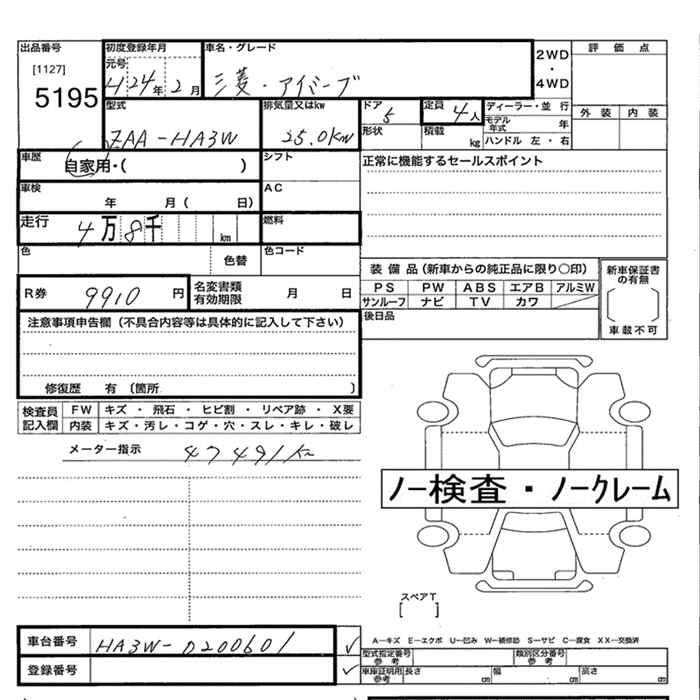 出品番号
[1127]
5195
初度登録年月
元号
H24年2月
車名・グレード
三菱・アイミーブ
2WD
・
4WD
評価点
外装 内装
型式
ZAA-HA3W
排気量又はkw
25.0kw
ドア
5
形状
定員
4人
積載
kg
ディーラー・並 行
モデル年式 年
ハンドル 左・右
車歴
自家用・( )
シフト
正常に機能するセールスポイント
車検
年 月( 日)
AC
走行
4万8千 km
燃料
色
色替
色コード
R券 9910 円
名変書類
有効期限
月 日
装備品(新車からの純正品に限り〇印)
PS PW ABS エアB アルミW
サンルーフ ナビ TV カワ
後日品
新車保証書
の有無
車載不可
注意事項申告欄(不具合内容等は具体的に記入して下さい)
修復歴 有 〔箇所 〕
検査員
記入欄
FW キズ・飛石・ヒビ割・リペア跡・X要
内装 キズ・汚レ・コゲ・穴・スレ・キレ・破レ
メーター指示 47491km
ノー検査・ノークレーム
スペアT
[ ]
車台番号 HA3W-0200601
登録番号
A―キズ E―エクボ U―凹み W―補修跡 S―サビ C―腐食 XX―交換済
型式指定番号
参考
類別区分番号
参考
車庫証明用
参考
長さ cm 幅 cm 高さ cm